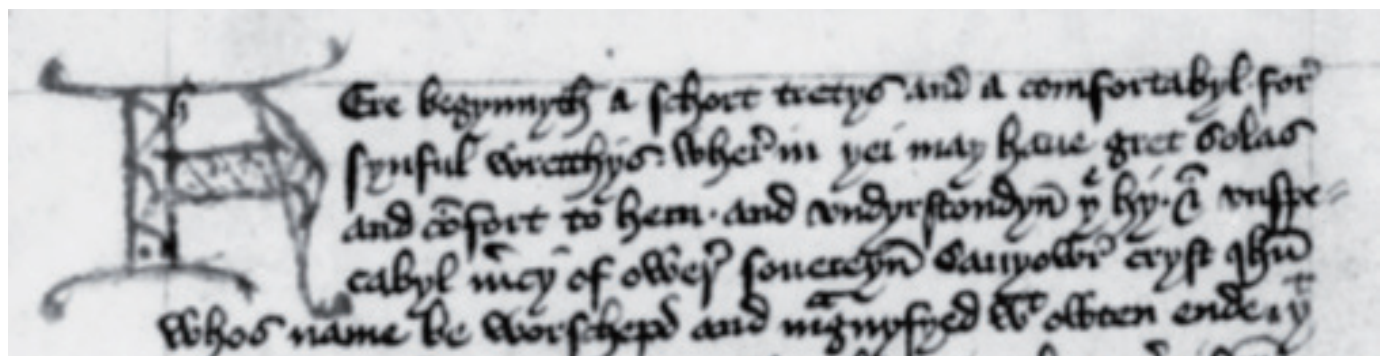 HEre begynnyth a schort tretys and a comfortabyl for
synful wrecchys. wher in þei may haue gret solas
and cōfort to hem. and vndyrstondyn þe hy. & vnspe=
cabyl mercy of ower souereyn Sauyowr cryst Ihū
whos name be worschepd and magnyfyed wt owten ende. þt